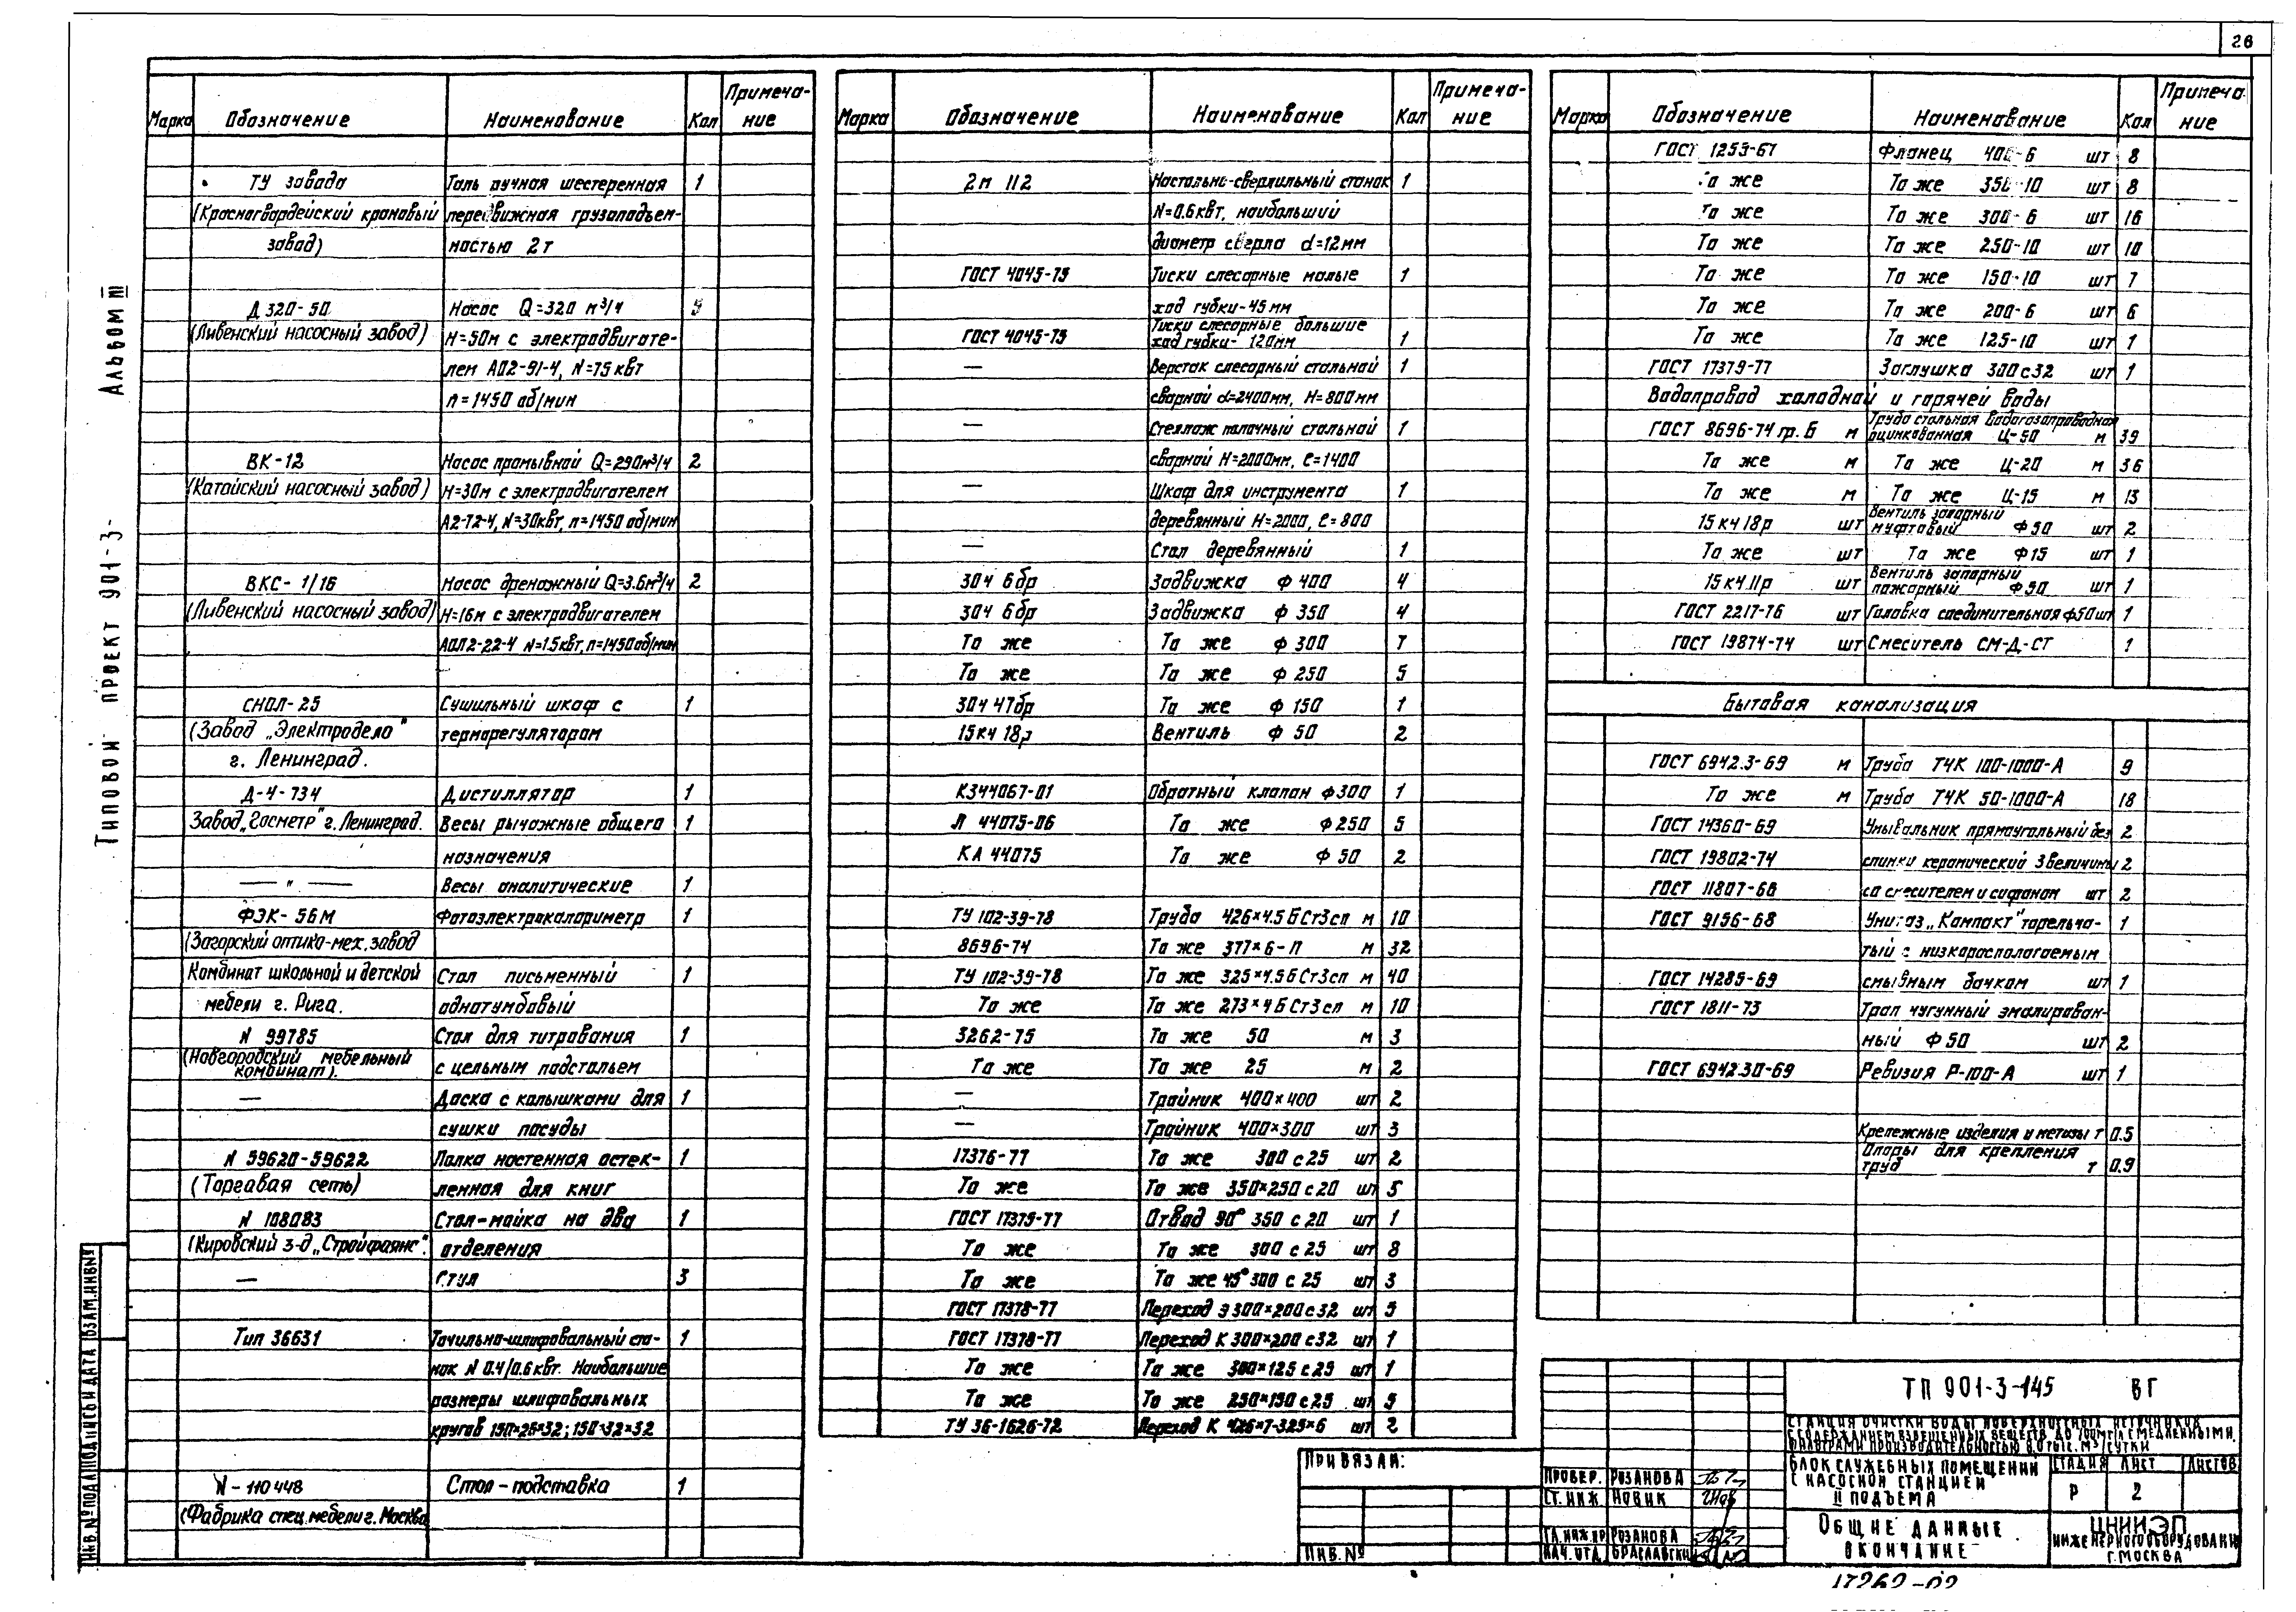 26
Типовой проект 901-3-
Альбом III
Марка Обозначение Наименование Кол Примечание
ТУ завода Таль ручная шестеренная 1
(Красногвардейский крановый передвижная грузоподъем-
завод) ностью 2 т
Д 320-50 Насос Q=320 м³/ч
(Ливенский насосный завод) Н=50м с электродвигате-
лем АО2-91-4, N=75 квт
n=1450 об/мин
ВК-12 Насос промывной Q=290м³/ч 2
(Катайский насосный завод) Н=30м с электродвигателем
А2-72-4, N=30квт, n=1450 об/мин
ВКС-1/16 Насос дренажный Q=3.6м³/ч 2
(Ливенский насосный завод) Н=16м с электродвигателем
АОЛ2-22-4 N=1.5квт, n=1450об/мин
СНОЛ-25 Сушильный шкаф с 1
(Завод „Электродело" терморегулятором
г. Ленинград.
Д-4-734 Дистиллятор 1
Завод „Госметр" г. Ленинград. Весы рычажные общего 1
назначения
— " — Весы аналитические 1
ФЭК-56М Фотоэлектроколориметр 1
(Загорский оптико-мех. завод
Комбинат школьной и детской Стол письменный 1
мебели г. Рига. однотумбовый
N 99785 Стол для титрования 1
(Новгородский мебельный с цельным подстольем
комбинат).
— Доска с колышками для 1
сушки посуды
N 59620-59622 Полка настенная остек- 1
(Торговая сеть) ленная для книг
N 108083 Стол-мойка на два 1
(Кировский з-д „Стройфаянс". отделения
— Стул 3
Тип 36631 Точильно-шлифовальный ста- 1
нок N 0.4/0.6 квт. Наибольшие
размеры шлифовальных
кругов 150×25×32; 150×32×32
N-110448 Стол-подставка 1
(Фабрика спец. мебели г. Москва
Марка Обозначение Наименование Кол Примечание
2м 112 Настольно-сверлильный станок 1
N=0.6квт, наибольший
диаметр сверла d=12мм
ГОСТ 4045-75 Тиски слесарные малые 1
ход губки-45 мм
ГОСТ 4045-75 Тиски слесарные большие
ход губки- 120мм 1
— Верстак слесарный стальной 1
сварной d=2400мм, Н=800мм
— Стеллаж полочный стальной 1
сварной Н=2000мм, ℓ=1400
— Шкаф для инструмента 1
деревянный Н=2000, ℓ=800
— Стол деревянный 1
30ч 6бр Задвижка Ф 400 4
30ч 6бр Задвижка Ф 350 4
То же То же Ф 300 7
То же То же Ф 250 5
30ч 47бр То же Ф 150 1
15кч 18р Вентиль Ф 50 2
КЗ44067-01 Обратный клапан Ф300 1
Л 44075-06 То же Ф250 5
КА 44075 То же Ф 50 2
ТУ 102-39-78 Труба 426×4.5 БСт3сп м 10
8696-74 То же 377×6-П м 32
ТУ 102-39-78 То же 325×4.5 БСт3сп м 40
То же То же 273×4 БСт3сп м 10
3262-75 То же 50 м 3
То же То же 25 м 2
— Тройник 400×400 шт 2
— Тройник 400×300 шт 3
17376-77 То же 300 с 25 шт 2
То же То же 350×250 с 20 шт 5
ГОСТ 17375-77 Отвод 90° 350 с 20 шт 1
То же То же 300 с 25 шт 8
То же То же 45° 300 с 25 шт 3
ГОСТ 17378-77 Переход Э 300×200 с 32 шт 5
ГОСТ 17378-77 Переход К 300×200 с 32 шт 1
То же То же 300×125 с 25 шт 1
То же То же 250×150 с 25 шт 5
ТУ 36-1626-72 Переход К 426×7-325×6 шт 2
Марка Обозначение Наименование Кол Примечание
ГОСТ 1253-67 Фланец 400-6 шт 8
То же То же 350-10 шт 8
То же То же 300-6 шт 16
То же То же 250-10 шт 10
То же То же 150-10 шт 7
То же То же 200-6 шт 6
То же То же 125-10 шт 1
ГОСТ 17379-77 Заглушка 300 с 32 шт 1
Водопровод холодной и горячей воды
ГОСТ 8696-74 гр. Б м Труба стальная водогазопроводная
оцинкованная Ц-50 м 39
То же м То же Ц-20 м 36
То же м То же Ц-15 м 13
15 кч 18р шт Вентиль запорный
муфтовый Ф 50 шт 2
То же шт То же Ф 15 шт 1
15 кч 11р шт Вентиль запорный
пожарный Ф 50 шт 1
ГОСТ 2217-76 шт Головка соединительная Ф50 шт 1
ГОСТ 19874-74 шт Смеситель СМ-Д-СТ 1
Бытовая канализация
ГОСТ 6942.3-69 м Труба ТЧК 100-1000-А 9
То же м Труба ТЧК 50-1000-А 18
ГОСТ 14360-69 Умывальник прямоугольный без 2
ГОСТ 19802-74 спинки керамический 3 величины 2
ГОСТ 11807-66 со смесителем и сифоном шт 2
ГОСТ 9156-68 Унитаз „Компакт" тарельча- 1
тый с низкорасполагаемым
ГОСТ 14285-69 смывным бачком шт 1
ГОСТ 1811-73 Трап чугунный эмалирован-
ный Ф 50 шт 2
ГОСТ 6942.30-69 Ревизия Р-100-А шт 1
Крепежные изделия и метизы т 0.5
Опоры для крепления
труб т 0.9
Привязан:
Инв. №
Провер. Розанова
Ст. инж Новик
Гл. инж пр Розанова
Нач. отд. Браславский
ТП 901-3-145 ВГ
Станция очистки воды поверхностных источников
с содержанием взвешенных веществ до 700мг/л с медленными
фильтрами производительностью 8.0 тыс. м³/сутки
Блок служебных помещений
с насосной станцией
II подъема
Стадия Лист Листов
Р 2
Общие данные
окончание
ЦНИИЭП
инженерного оборудования
г. Москва
Инв. № подл Подпись и дата Взам. инв №
17269-02